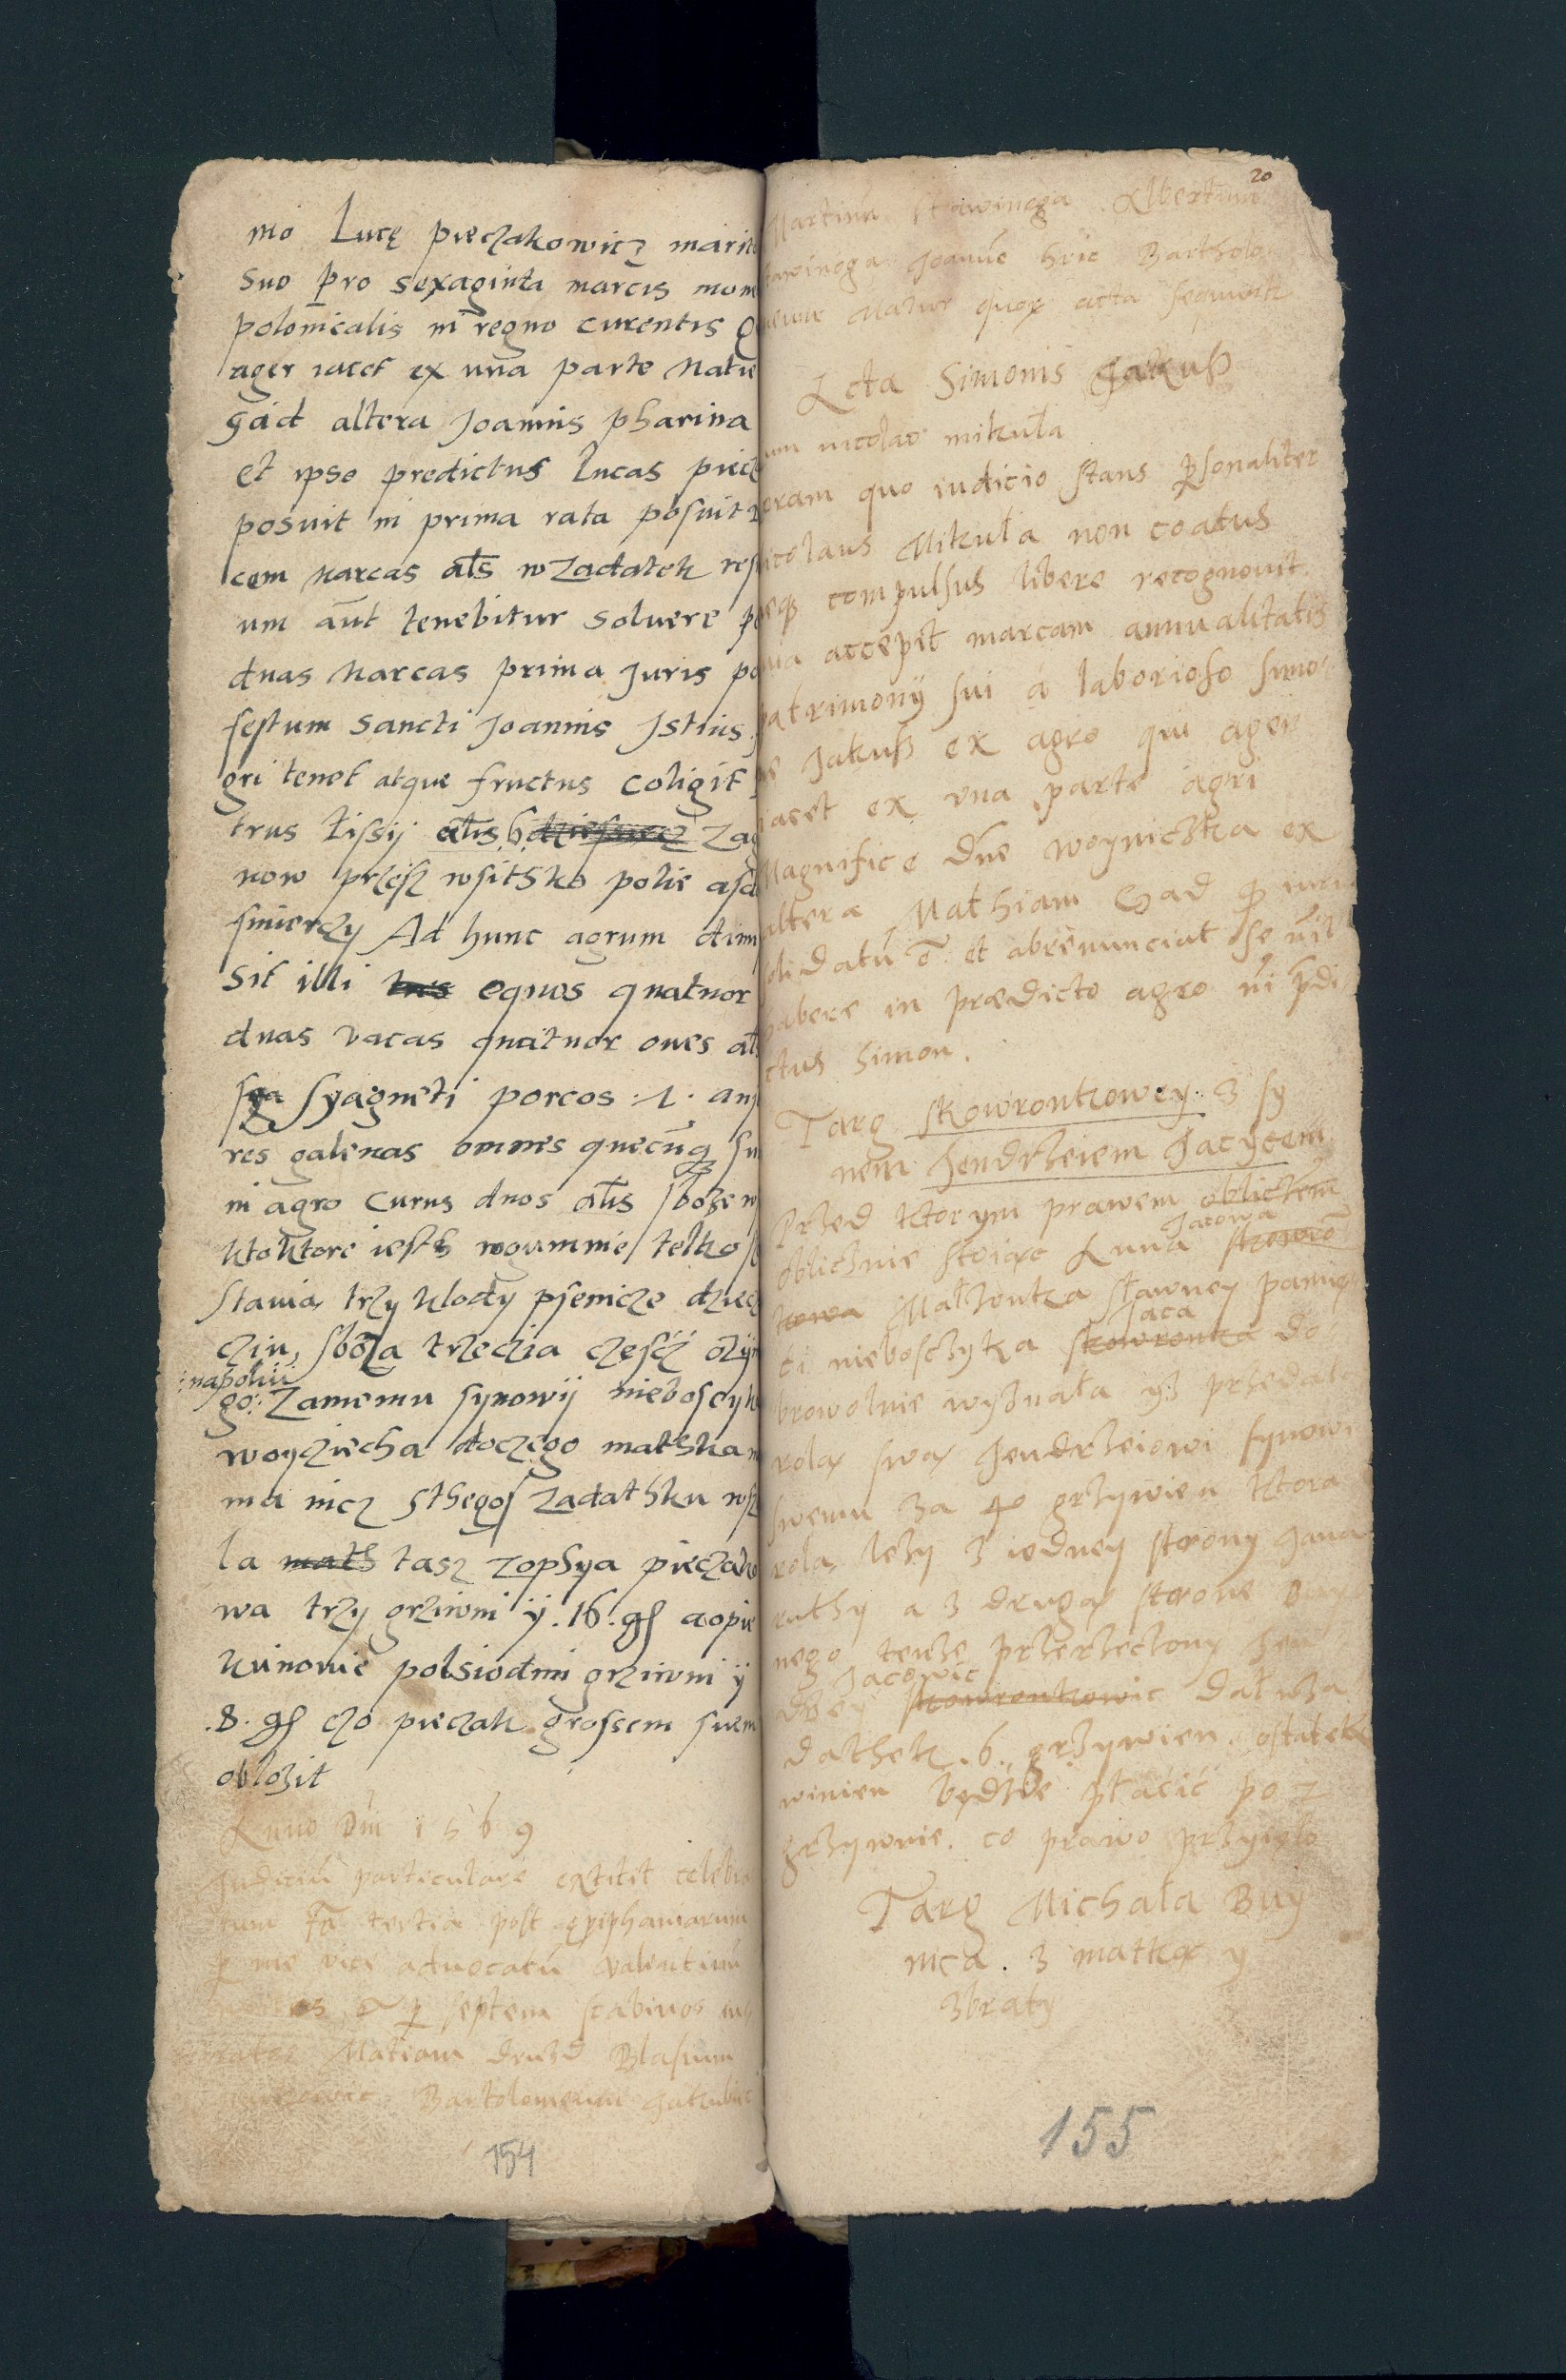 mo Lucę pieczakowicz marit
suo pro sexaginta marcis mone
polonicalis in regno curentis
ager iacet ex una parte Matie
gad altera Joannis pharina
et ipse predictus Lucas piecz
posuit in prima rata posuit
cem marcas als w zadatek res
um aut tenebitur soluere p
duas marcas prima Juris po
festum sancti Joannis Istius
gri tenet atque fructus coligit
trus Lissij alis 6 dziesiecz zag
now przesz wsitsko polie
smierzy Ad hunc agrum dim
sit illi tres equos quatuor
duas vacas quatuor oues als
sya syagneti porcos .1. ans
res galenas omnes quecunq su
in agro curus duos alis sboze w
ktoktore iesth wgumnie telko
stania trzy klody psenicze dziec
czin, sboza trzecia czescz ozÿm
: napoliu
go: zamemu synowij nieboscyk
woyciecha doczego mathka n
ma nicz sthegos zadathku wsz
la math tasz zophya pieczako
wa trzy grziwni ÿ .16. gs aopie
kunowie polsiodmi grziwni ÿ
.8. gs czo pieczak grossem suem
oblozit
Anno Dni 1569
Judiciu particulare extitit celebra
tum fa tertia post epiphaniarum
p me vice aduocatu Valentinu
es & p septem scabinos
Matiam Druzd Blasium
Bartolomeum Jakubiec
154
20
Martinu stawinoga Albertum
tawinoga Joanne hric Bartholo
meum Matur quor acta sequunt
Acta Simonis Jakuß
um nicolao mikuła
oram quo iudicio stans psonaliter
icolaus Mikuła non coatus
eq compulsus libere recognouit
uia accepit marcam annualitatis
patrimonÿ sui a laborioso simo
ne Jakuß ex agro qui ager
iacet ex una parte agri
Magnifice Dne woynickka ex
altera Mathiam Gad
datu e et abrenunciat se nil
habere in prædicto agro ni pdi
ctus simon.
Targ skowronkowey z sy
nem Jendrzeiem Jacycem
Przed ktorym prawem oblictem
oblicznie stoiąc Anna Jacowa skowro
kowa Małzonka sławney pamięi
ci nieboszczyka Jaca skowronka do
browolnie wyznała yz przedała
rolą swą Jendrzeiowi synowi
swemu za 40 grzywien ktora
rola lezy z iedney strony Jana
ruthy a z drugą strone Buy
nego tenze przerzeczony Jen
drzey Jacowic skowronkowic dał wza
dathek .6. grzywien. ostatek
winien będzie płacić po 2
grzywnie. co prawo przyięło
Targ Michała Buy
nica. z matką y
zbraty
155